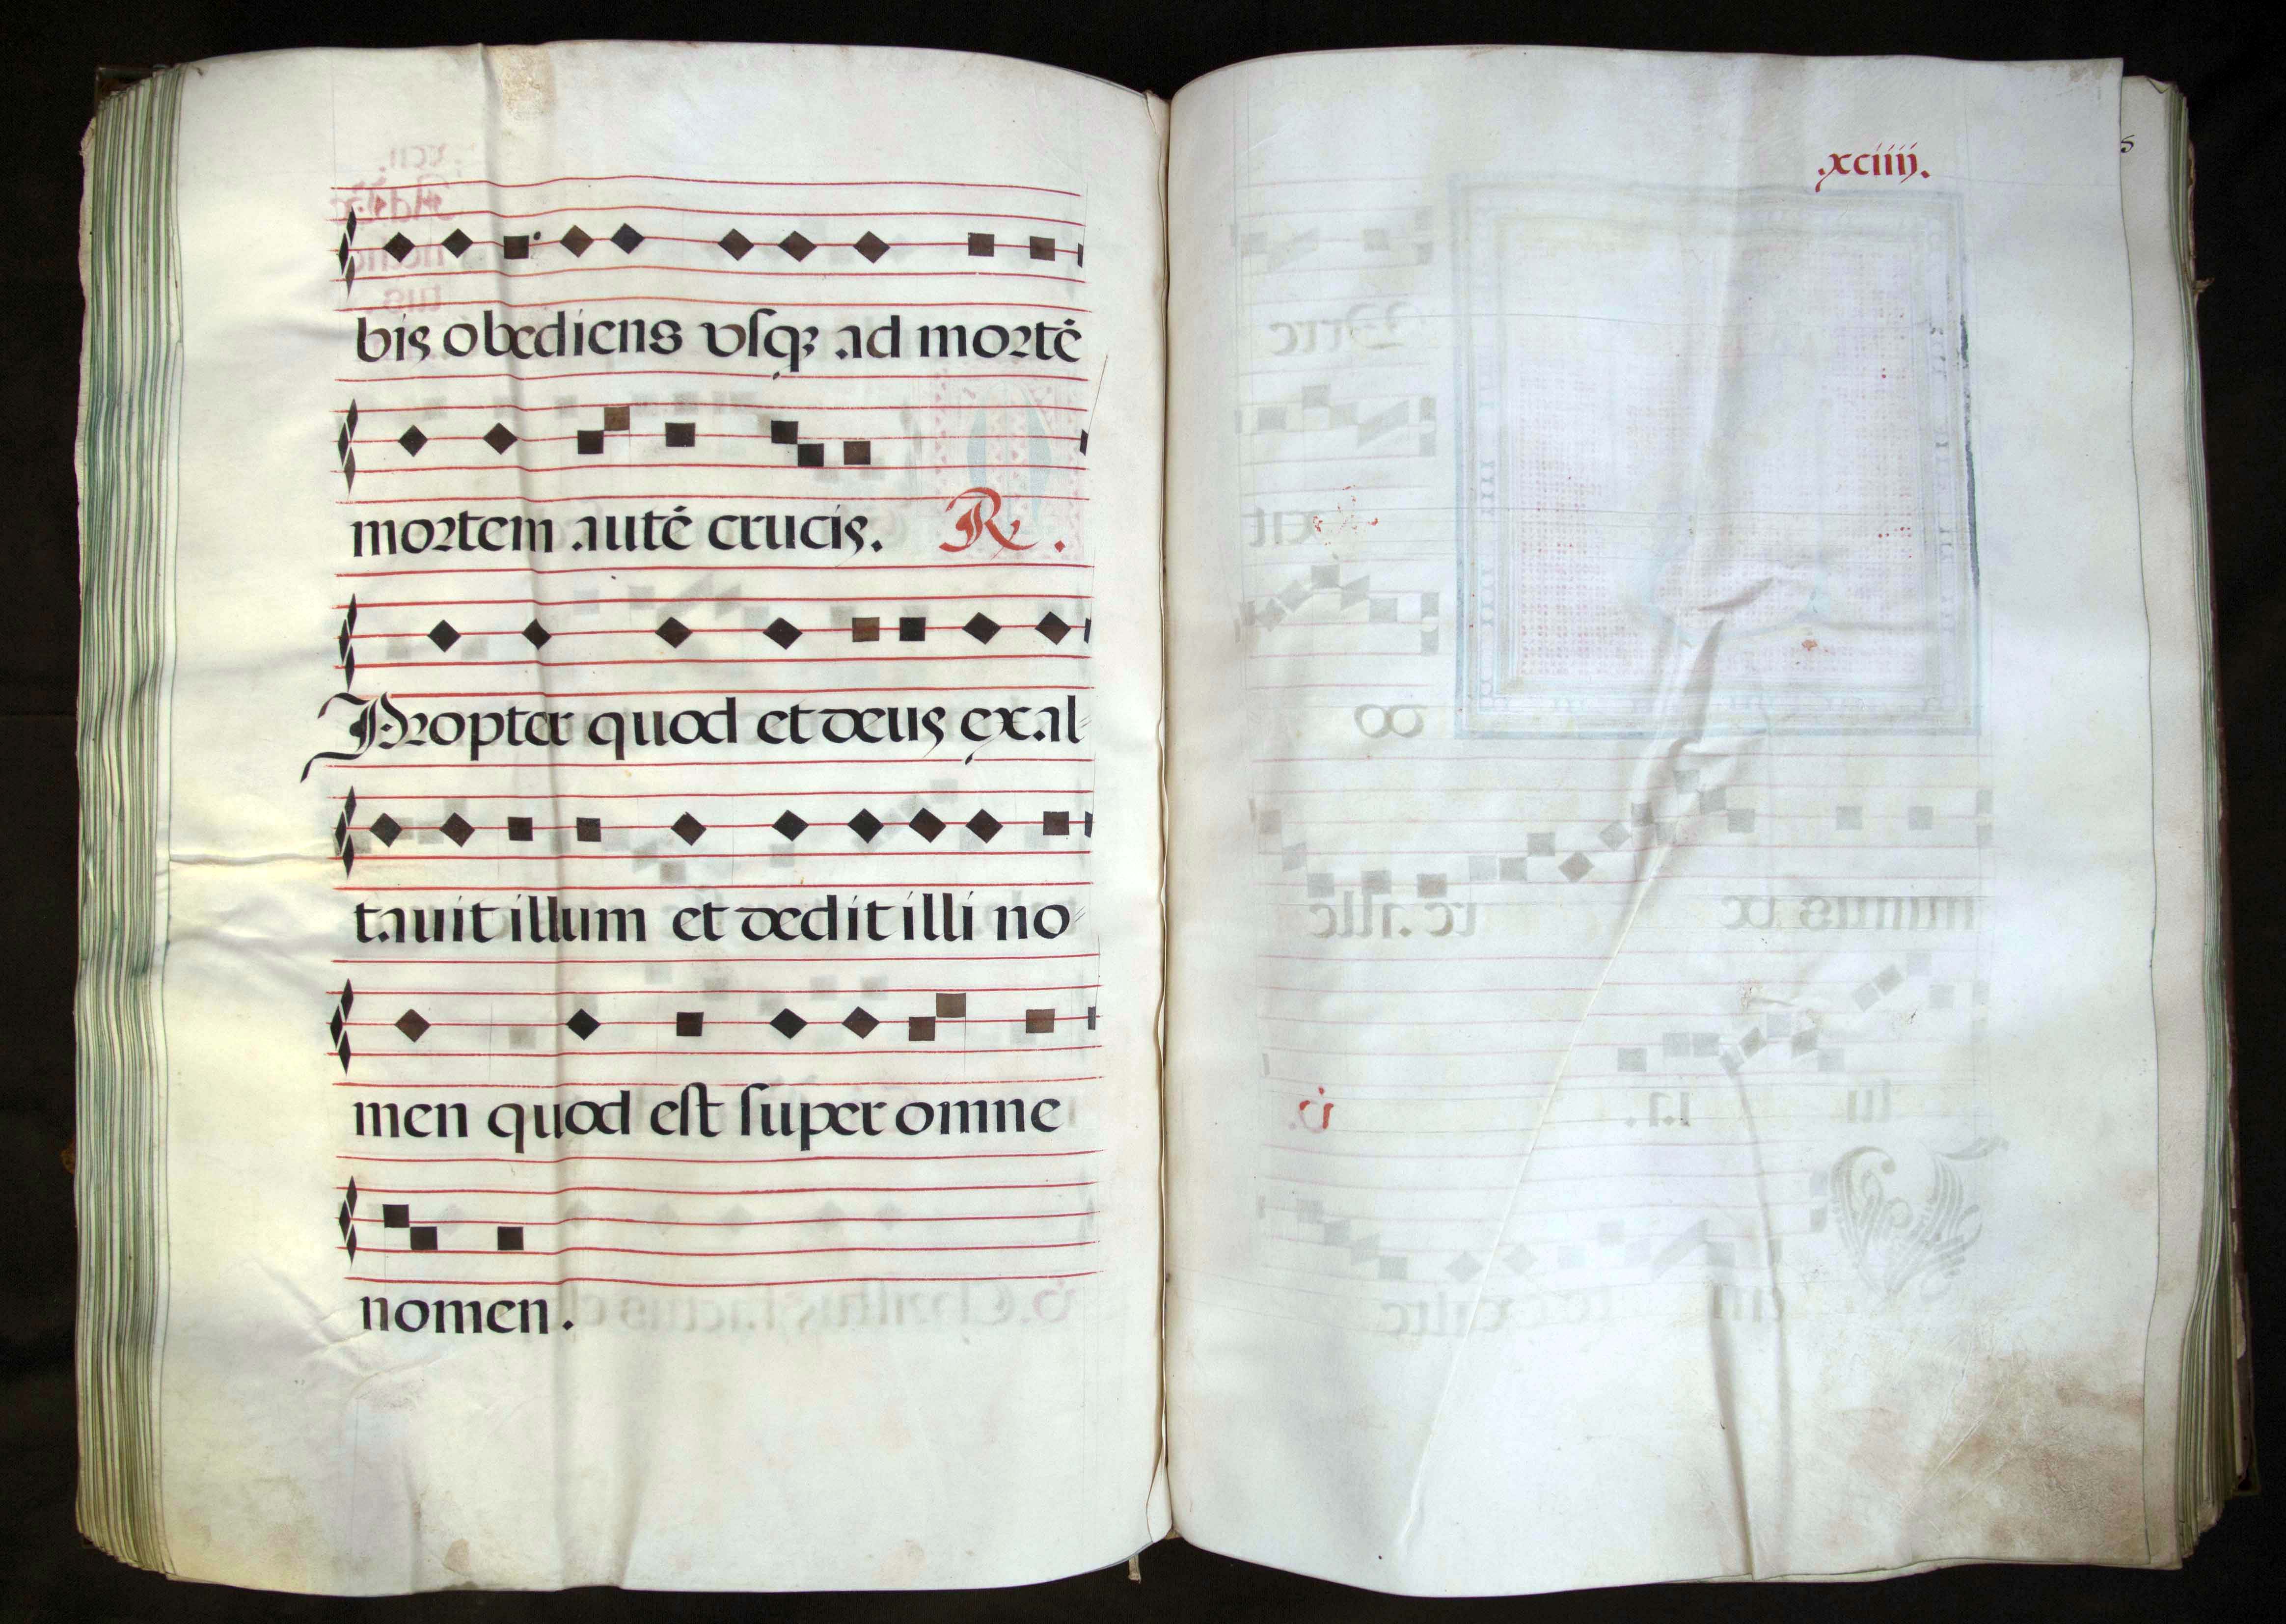 bis obediens vſqꝫ ad mortē
mortem autē crucis. R.
Propter quod et deus exal-
tauit illum et dedit illi no-
men quod eſt ſuper omne
nomen.
.xciiij.